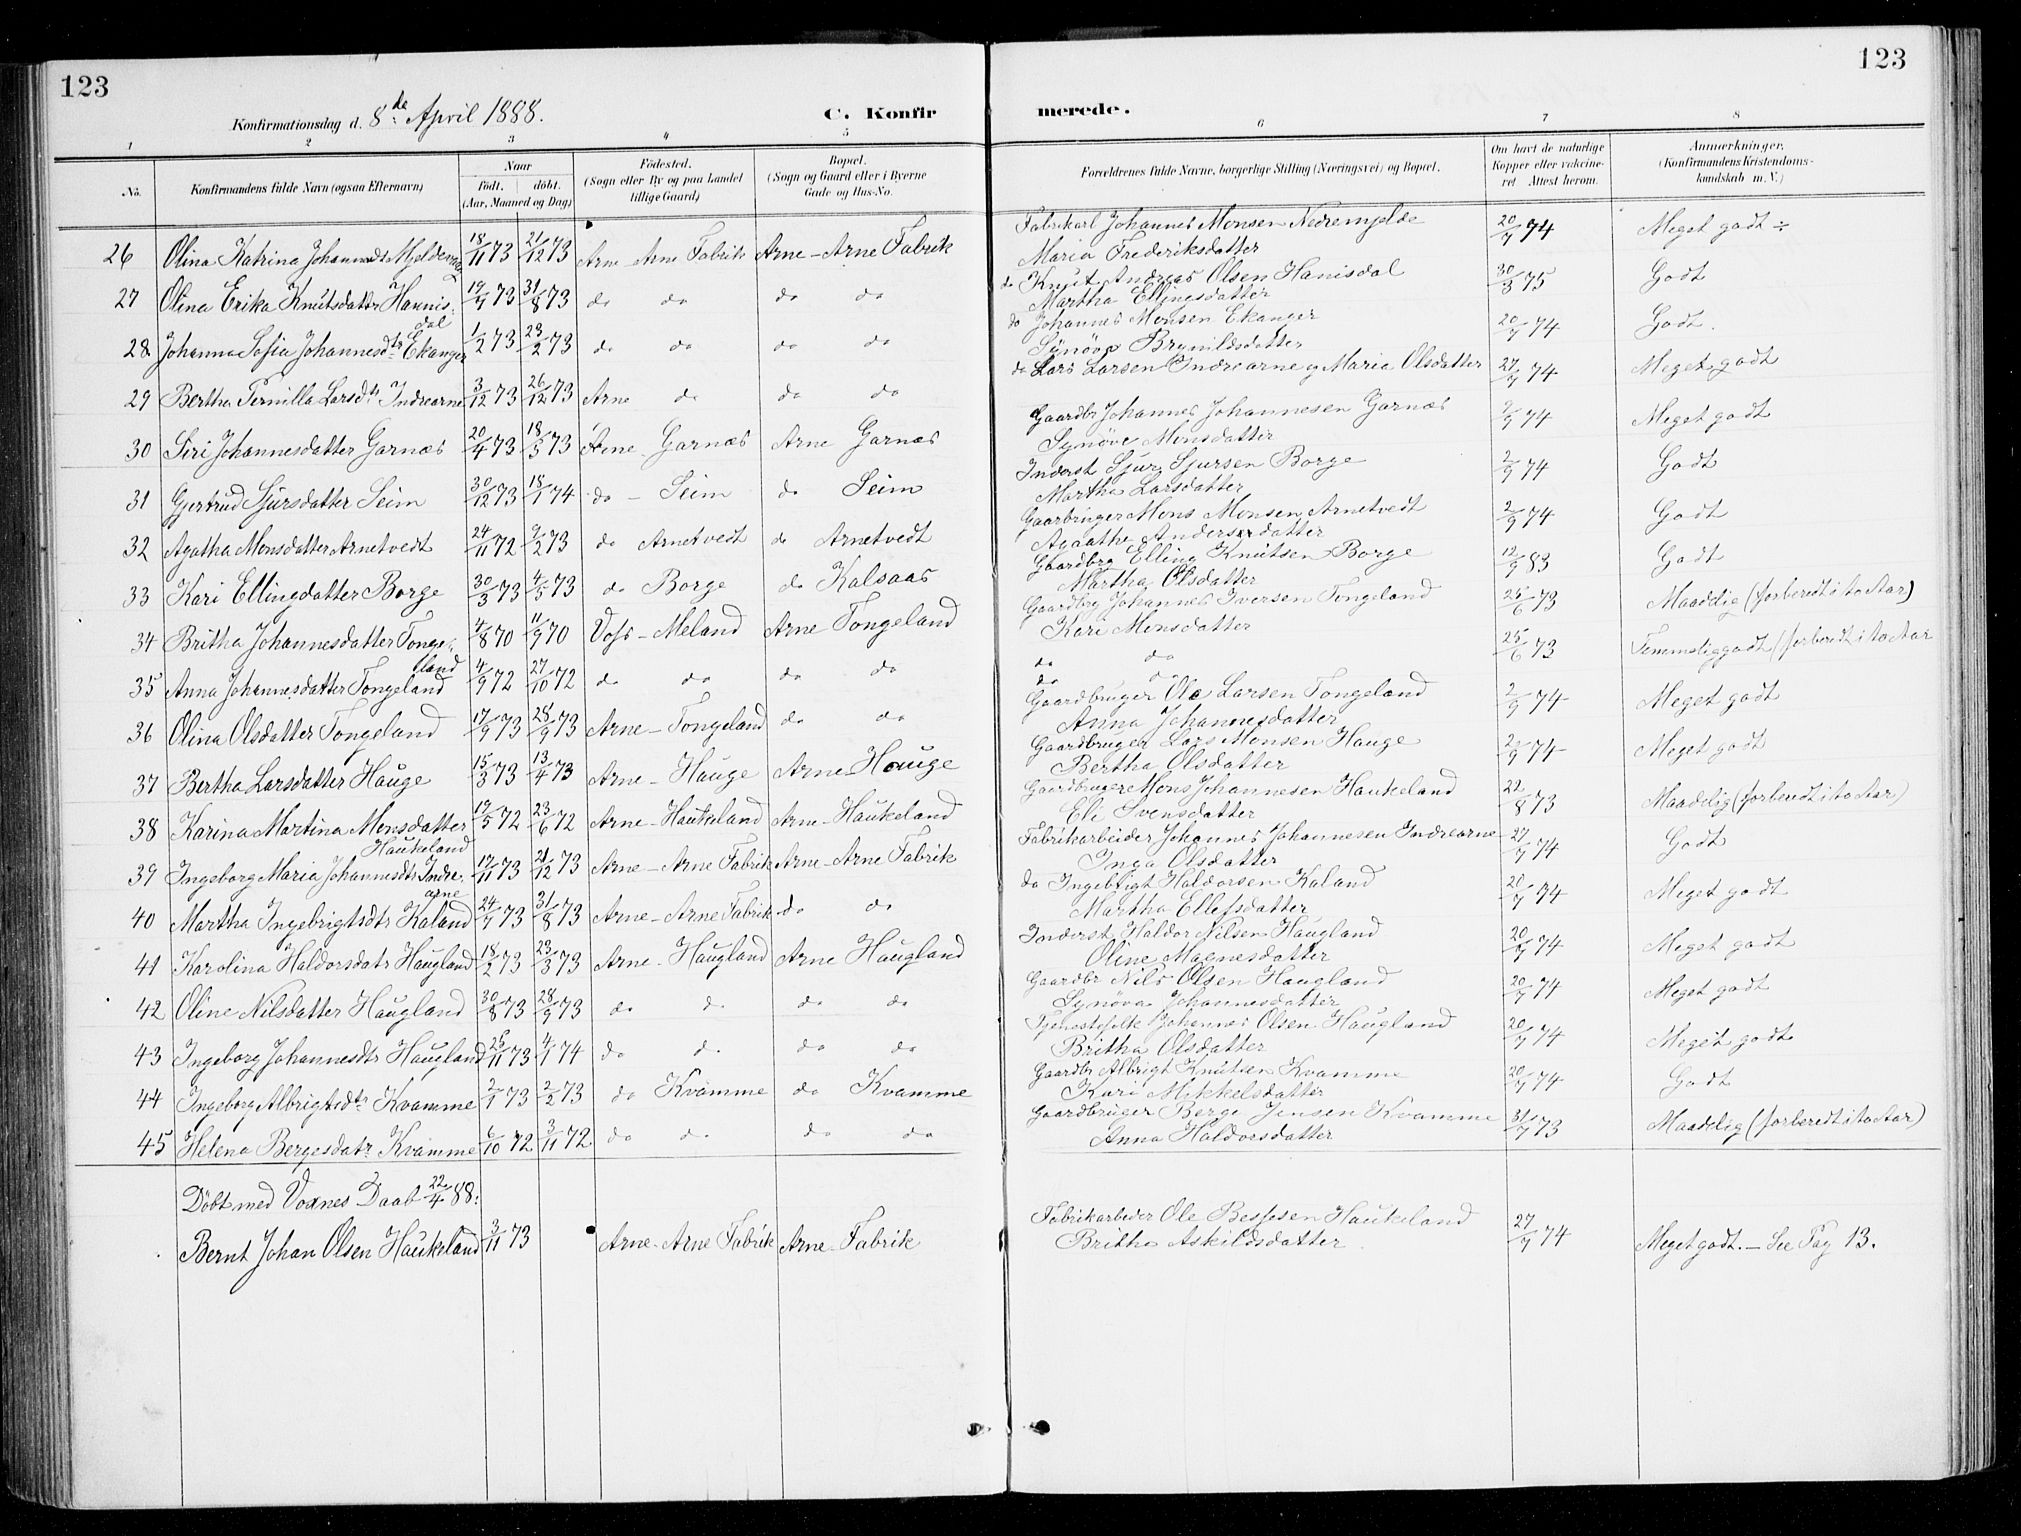 123
123
Konfirmationsdag d. 8de April 1888.
C. Konfir
merede.
1 2 3 4 5 6 7 8
No.
Konfirmandens fulde Navn (ogsaa Efternavn)
Naar
födt. döbt.
(Aar, Maaned og Dag)
Födested.
(Sogn eller By og paa Landet
tillige Gaard)
Bopæl.
(Sogn og Gaard eller i Byerne
Gade og Hus-No.
Forældrenes fulde Navne, borgerlige Stilling (Næringsvei) og Bopæl.
Om havt de naturlige
Kopper eller vakcine-
ret Attest herom.
Anmærkninger.
(Konfirmandens Kristendoms-
kundskab m. V.)
26 Olina Katrina Johannesdtr 18/11 73 21/12 73 Arne - Arne Fabrik Arne - Arne Fabrik Fabrikarl Johannes Monsen Nedremjelde 20/7 74 Meget godt ÷
Maria Frederiksdatter
27 Olina Erika Knutsdatter Hannis- 19/7 73 31/8 73 do do do do do Knut Andreas Olsen Hanisdal 30/3 75 Godt
dal
Martha Ellingsdatter
28 Johanna Sofia Johannesdtr Ekanger 1/2 73 23/2 73 do do do do do Johannes Monsen Ekanger 20/7 74 Godt.
Synöve Brynildsdatter
29 Bertha Pernilla Larsdtr Indrearne 3/12 73 26/12 73 Arne do do do do Lars Larsen Indrearne og Maria Olsdatter 27/7 74 Meget godt
30 Siri Johannesdatter Garnæs 20/4 73 18/5 73 Arne Garnæs Arne Garnæs Gaardbr Johannes Johannesen Garnæs 2/9 74 Meget godt
Synöve Monsdatter
31 Gjertrud Sjursdatter Seim 30/12 73 18/1 74 do - Seim do Seim Inderst Sjur Sjursen Borge 2/9 74 Godt
Martha Larsdatter
32 Agatha Monsdatter Arnetvedt 24/11 72 9/2 73 do Arnetvedt do Arnetvedt Gaarbruger Mons Monsen Arnetvedt 2/9 74 Godt
Agaathe Andersdatter
33 Kari Ellingdatter Borge 30/3 73 4/5 73 do Borge do Kalsaas Gaardbrg Elling Knutsen Borge 12/9 83 Godt
Martha Olsdatter
34 Britha Johannesdatter Tonge- 4/8 70 11/9 70 Voss - Meland Arne Tongeland Gaardbrg Johannes Iversen Tongeland 25/6 73 Maadelig (forberedt i to Aar)
land
Kari Monsdatter
35 Anna Johannesdatter Tongeland 4/9 72 27/10 72 do do do do do do 25/6 73 Temmelig godt (forberedt i to Aar
do do
36 Olina Olsdatter Tongeland 17/9 73 28/9 73 Arne - Tongeland do do Gaardbruger Ole Larsen Tongeland 2/9 74 Meget godt
Anna Johannesdatter
37 Bertha Larsdatter Hauge 15/3 73 13/4 73 Arne - Hauge Arne Hauge Gaardbruger Lars Monsen Hauge 2/9 74 Meget godt
Bertha Olsdatter
38 Karina Martina Monsdatter 19/5 72 23/6 72 Arne - Haukeland Arne - Haukeland Gaardbruger Mons Johannesen Haukeland 22/8 73 Maadelig (forberedt i to Aar)
Haukeland
Eli Svensdatter
39 Ingeborg Maria Johannesdtr Indre- 19/11 73 21/12 73 Arne - Arne Fabrik Arne - Arne Fabrik Fabrikarbeider Johannes Johannesen Indrearne 27/7 74 Godt
arne
Inga Olsdatter
40 Martha Ingebrigtsdtr Kaland 24/7 73 31/8 73 Arne - Arne Fabrik do do do Ingebrigt Haldorsen Kaland 20/7 74 Meget godt
Martha Ellefsdatter
41 Karolina Haldorsdatr Haugland 18/2 73 23/3 73 Arne - Haugland Arne Haugland Inderst Haldor Nilsen Haugland 20/7 74 Meget godt
Oline Magnesdatter
42 Oline Nilsdatter Haugland 30/8 73 28/9 73 do do do do Gaardbr Nils Olsen Haugland 20/7 74 Meget godt
Synöva Johannesdatter
43 Ingeborg Johannesdtr Haugland 25/11 73 4/1 74 do do do do Tjenestefolk Johannes Olsen Haugland 20/7 74 Meget godt
Britha Olsdatter
44 Ingeborg Albrigtsdtr Kvamme 2/1 73 2/2 73 do Kvamme do Kvamme Gaardbr Albrigt Knutsen Kvamme 20/7 74 Godt
Kari Mikkelsdatter
45 Helena Bergesdatr Kvamme 6/10 72 3/11 72 do do do do Gaardbruger Berge Jensen Kvamme 31/7 73 Maadelig (forberedt i to Aar)
Anna Haldorsdatter
Döbt med Voxnes Daab 22/4 88:
Bernt Johan Olsen Haukeland 3/11 73 Arne - Arne Fabrik Arne - Fabrik Fabrikarbeder Ole Bessesen Haukeland 27/7 74 Meget godt. - See Pag 13.
Britha Askildsdatter